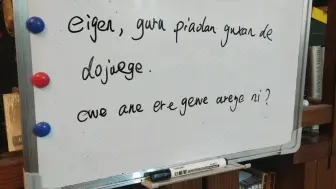 eigen, guru piadan guxan de
dojuege.
owo ane ere gewe arege ni?